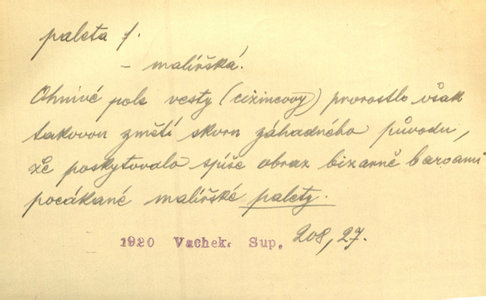 paleta f.
– malířská.
Ohnivé pole vesty (cizincovy) prorostlo však
takovou změtí skvrn záhadného původu,
že poskytovalo spíše obraz bizarně barvami
pocákané malířské palety.
1920 Vachek. Sup. 208,27.